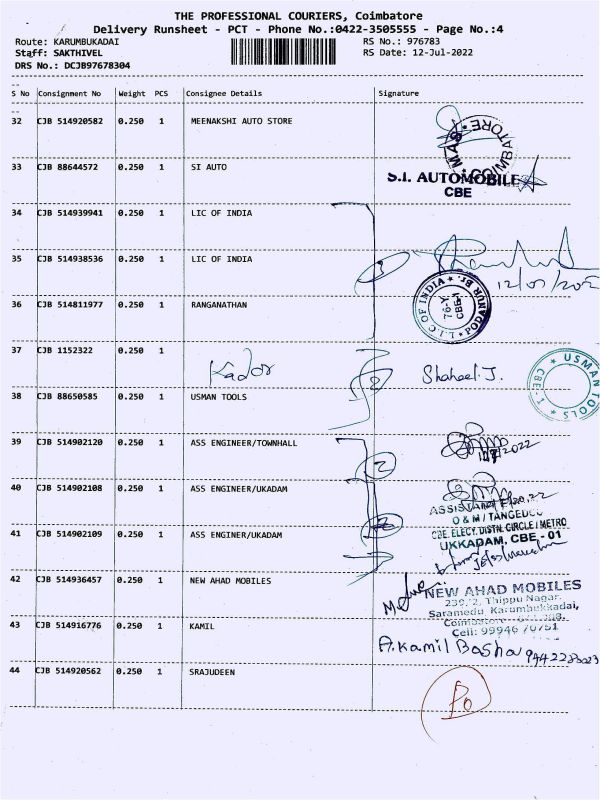 THE PROFESSIONAL COURIERS, Coimbatore
Delivery Runsheet - PCT - Phone No.:0422-3505555 - Page No.:4
Route: KARUMBUKADAI RS No.: 976783
Staff: SAKTHIVEL RS Date: 12-Jul-2022
DRS No.: DCJB97678304
S No Consignment No Weight PCS Consignee Details Signature
32 CJB 514920582 0.250 1 MEENAKSHI AUTO STORE
MAS COIMBATORE
33 CJB 88644572 0.250 1 SI AUTO
S.I. AUTOMOBILE
CBE
34 CJB 514939941 0.250 1 LIC OF INDIA
35 CJB 514938536 0.250 1 LIC OF INDIA
L.I.C OF INDIA PODANUR Br.
76-Y
CBE
36 CJB 514811977 0.250 1 RANGANATHAN
37 CJB 1152322 0.250 1
Kador Shaheel J.
38 CJB 88650585 1 0.250 USMAN TOOLS
USMAN TOOLS CBE-1
39 CJB 514902120 0.250 1 ASS ENGINEER/TOWNHALL
2
40 CJB 514902108 0.250 1 ASS ENGINEER/UKADAM
ASSISTANT
O & M / TANGEDCO
CBE. ELECY. DISTN. CIRCLE / METRO
UKKADAM, CBE - 01
41 CJB 514902109 0.250 1 ASS ENGINER/UKADAM
42 CJB 514936457 0.250 1 NEW AHAD MOBILES
NEW AHAD MOBILES
239/2, Thippu Nagar,
Saramedu, Karumbukkadai,
Coimbatore
Cell: 99946 70751
43 CJB 514916776 0.250 1 KAMIL
A.Kamil Basha
44 CJB 514920562 0.250 1 SRAJUDEEN